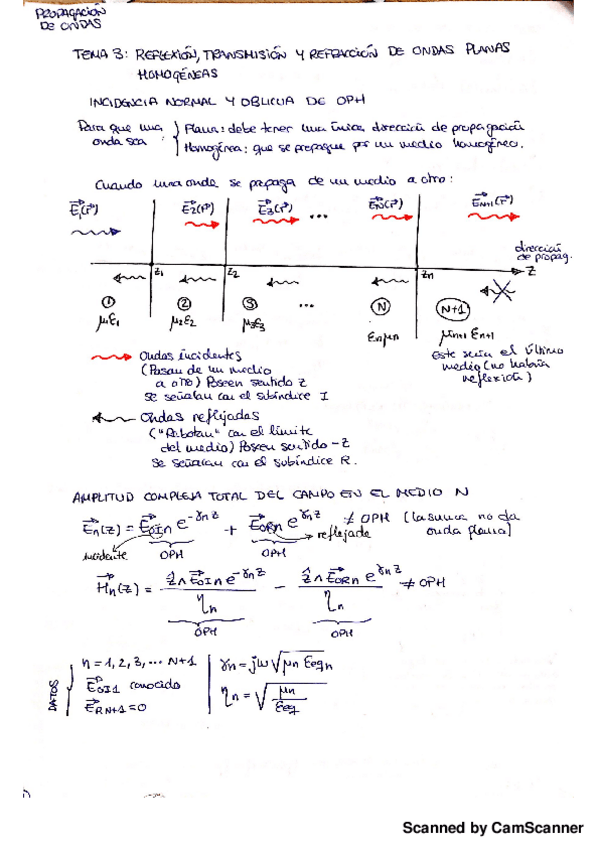 PROPAGACIÓN
DE ONDAS
TEMA 3: REFLEXIÓN, TRANSMISIÓN Y REFRACCIÓN DE ONDAS PLANAS
HOMOGÉNEAS
INCIDENCIA NORMAL Y OBLICUA DE OPH
Para que una onda sea : { Plana: debe tener una única dirección de propagación
Homogénea: que se propague por un medio homogéneo.
Cuando una onda se propaga de un medio a otro:
E₁(r) E₂(r) E₃(r) ... E_N(r) E_N+1(r)
dirección
de propag.
z₁ z₂ z_n z
① ② ③ ... Ⓝ (N+1)
μ₁ε₁ μ₂ε₂ μ₃ε₃ ε_n μ_n μ_n+1 ε_n+1
Este sería el último
medio (no habría
reflexión)
Ondas incidentes
(Pasan de un medio
a otro) Poseen sentido z
se señalan con el subíndice I
Ondas reflejadas
("Rebotan" con el límite
del medio) Poseen sentido -z
se señalan con el subíndice R.
AMPLITUD COMPLEJA TOTAL DEL CAMPO EN EL MEDIO N
E_n(z) = E_0In e^(-γn z) + E_0Rn e^(γn z) ≠ OPH (la suma no da
onda plana)
incidente OPH OPH reflejada
H_n(z) = ẑ∧E_0In e^(-γn z) / η_n - ẑ∧E_0Rn e^(γn z) / η_n ≠ OPH
OPH OPH
DATOS
n = 1, 2, 3, ... N+1 γn = jω√(μn εeqn)
E_0I1 conocido η_n = √(μn / εeq)
E_RN+1 = 0
Scanned by CamScanner